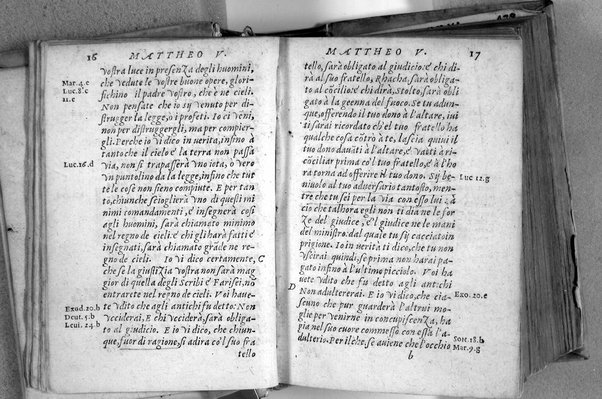 16 MATTHEO V.
vostra luce in presenza degli huomini,
che vedute le vostre buone opere, glori-
fichino il padre vostro, che è ne cieli.
Non pensate che io su venuto per di-
strugger la legge, ò i profeti. Io ci veni,
non per distruggergli, ma per compier-
gli. Perche io vi dico in verita, infino à
tanto che il cielo e la terra non passa
via, non si trapasserà vno iota, ò vero
vn puntolino da la legge, infino che tut
te le cose non sieno compiute. E per tan
to, chiunche scioglierà vno di questi mi
nimi comandamenti, e insegnerà così
agli huomini, sarà chiamato minimo
nel regno de cieli: e chi gli harà fatti e
insegnati, sarà chiamato gräde ne re-
gno de cieli. Io vi dico certamente,
che se la giustizia vostra non sarà mag
gior di quella degli Scribi e Farisei, nõ
entrarete nel regno de cieli. Voi haue-
te vdito che agli antichi fu detto: Non
vcciderai, E chi vcciderà, sarà obliga-
to al giudicio. E io vi dico, che chiun-
que, fuor di ragione, si adira co'l suo fra
tello
Mar. 4. c
Luc. 8. c
11. e
Luc. 16. d
C
Exod. 20. b
Deut. 5. b
Leui. 24. b
MATTHEO V. 17
tello, sarà obligato al giudicio: e chi di-
rà al suo fratello, Rhacha, sarà obligato
al cõcilio: e chi dirà, Stolto, sarà obli
gato à la geenna del fuoco. Se tu adun-
que, offerendo il tuo dono à l'altare, iui
ti sarai ricordato che'l tuo fratello ha
qualche cosa cõtro à te, lascia quiui il
tuo dono dauãti à l'altare, e vatti à ri-
cõciliar prima co'l tuo fratello, e à l'ho
ra torna ad offerire il tuo dono. Sij be-
niuolo al tuo aduersario tantosto, men-
tre che tu sei per la via con esso lui: à
ciò che talhora egli non ti dia ne le for
ze del giudice, e'l giudice ne le mani
del ministro: dal quale tu sij cacciato in
prigione. Io in verità ti dico, che tu non
vscirai quindi, se prima non harai pa-
gato infino à l'ultimo picciolo. Voi ha
uete vdito che fu detto agli antichi
Non adultererai. E io vi dico, che cia-
scuno che pur guarderà l'altrui mo-
glie per venirne in concupiscenza, ha
gia nel suo cuore commesso con essa l'a-
dulterio. Per il che, se auiene che l'occhio
b
Luc 12. g
D
Exo. 20. c
Sott. 18. b
Mar. 9. g